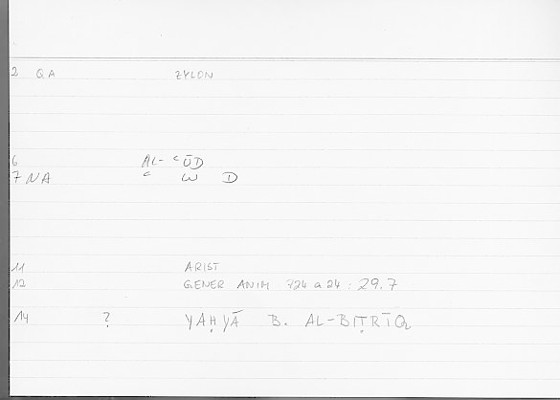 2 Q A ZYLON
6 AL-ʿŪD
7 NA ʿ W D
11 ARIST
12 GENER ANIM 724 a 24 : 29.7
14 ? YAḤYĀ B. AL-BIṬRĪQ